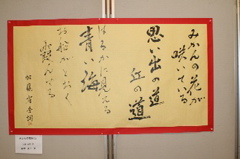 みかんの花が
咲いている
思い出の道
丘の道
はるかに見える
青い海
お船がとおく
霞んでる